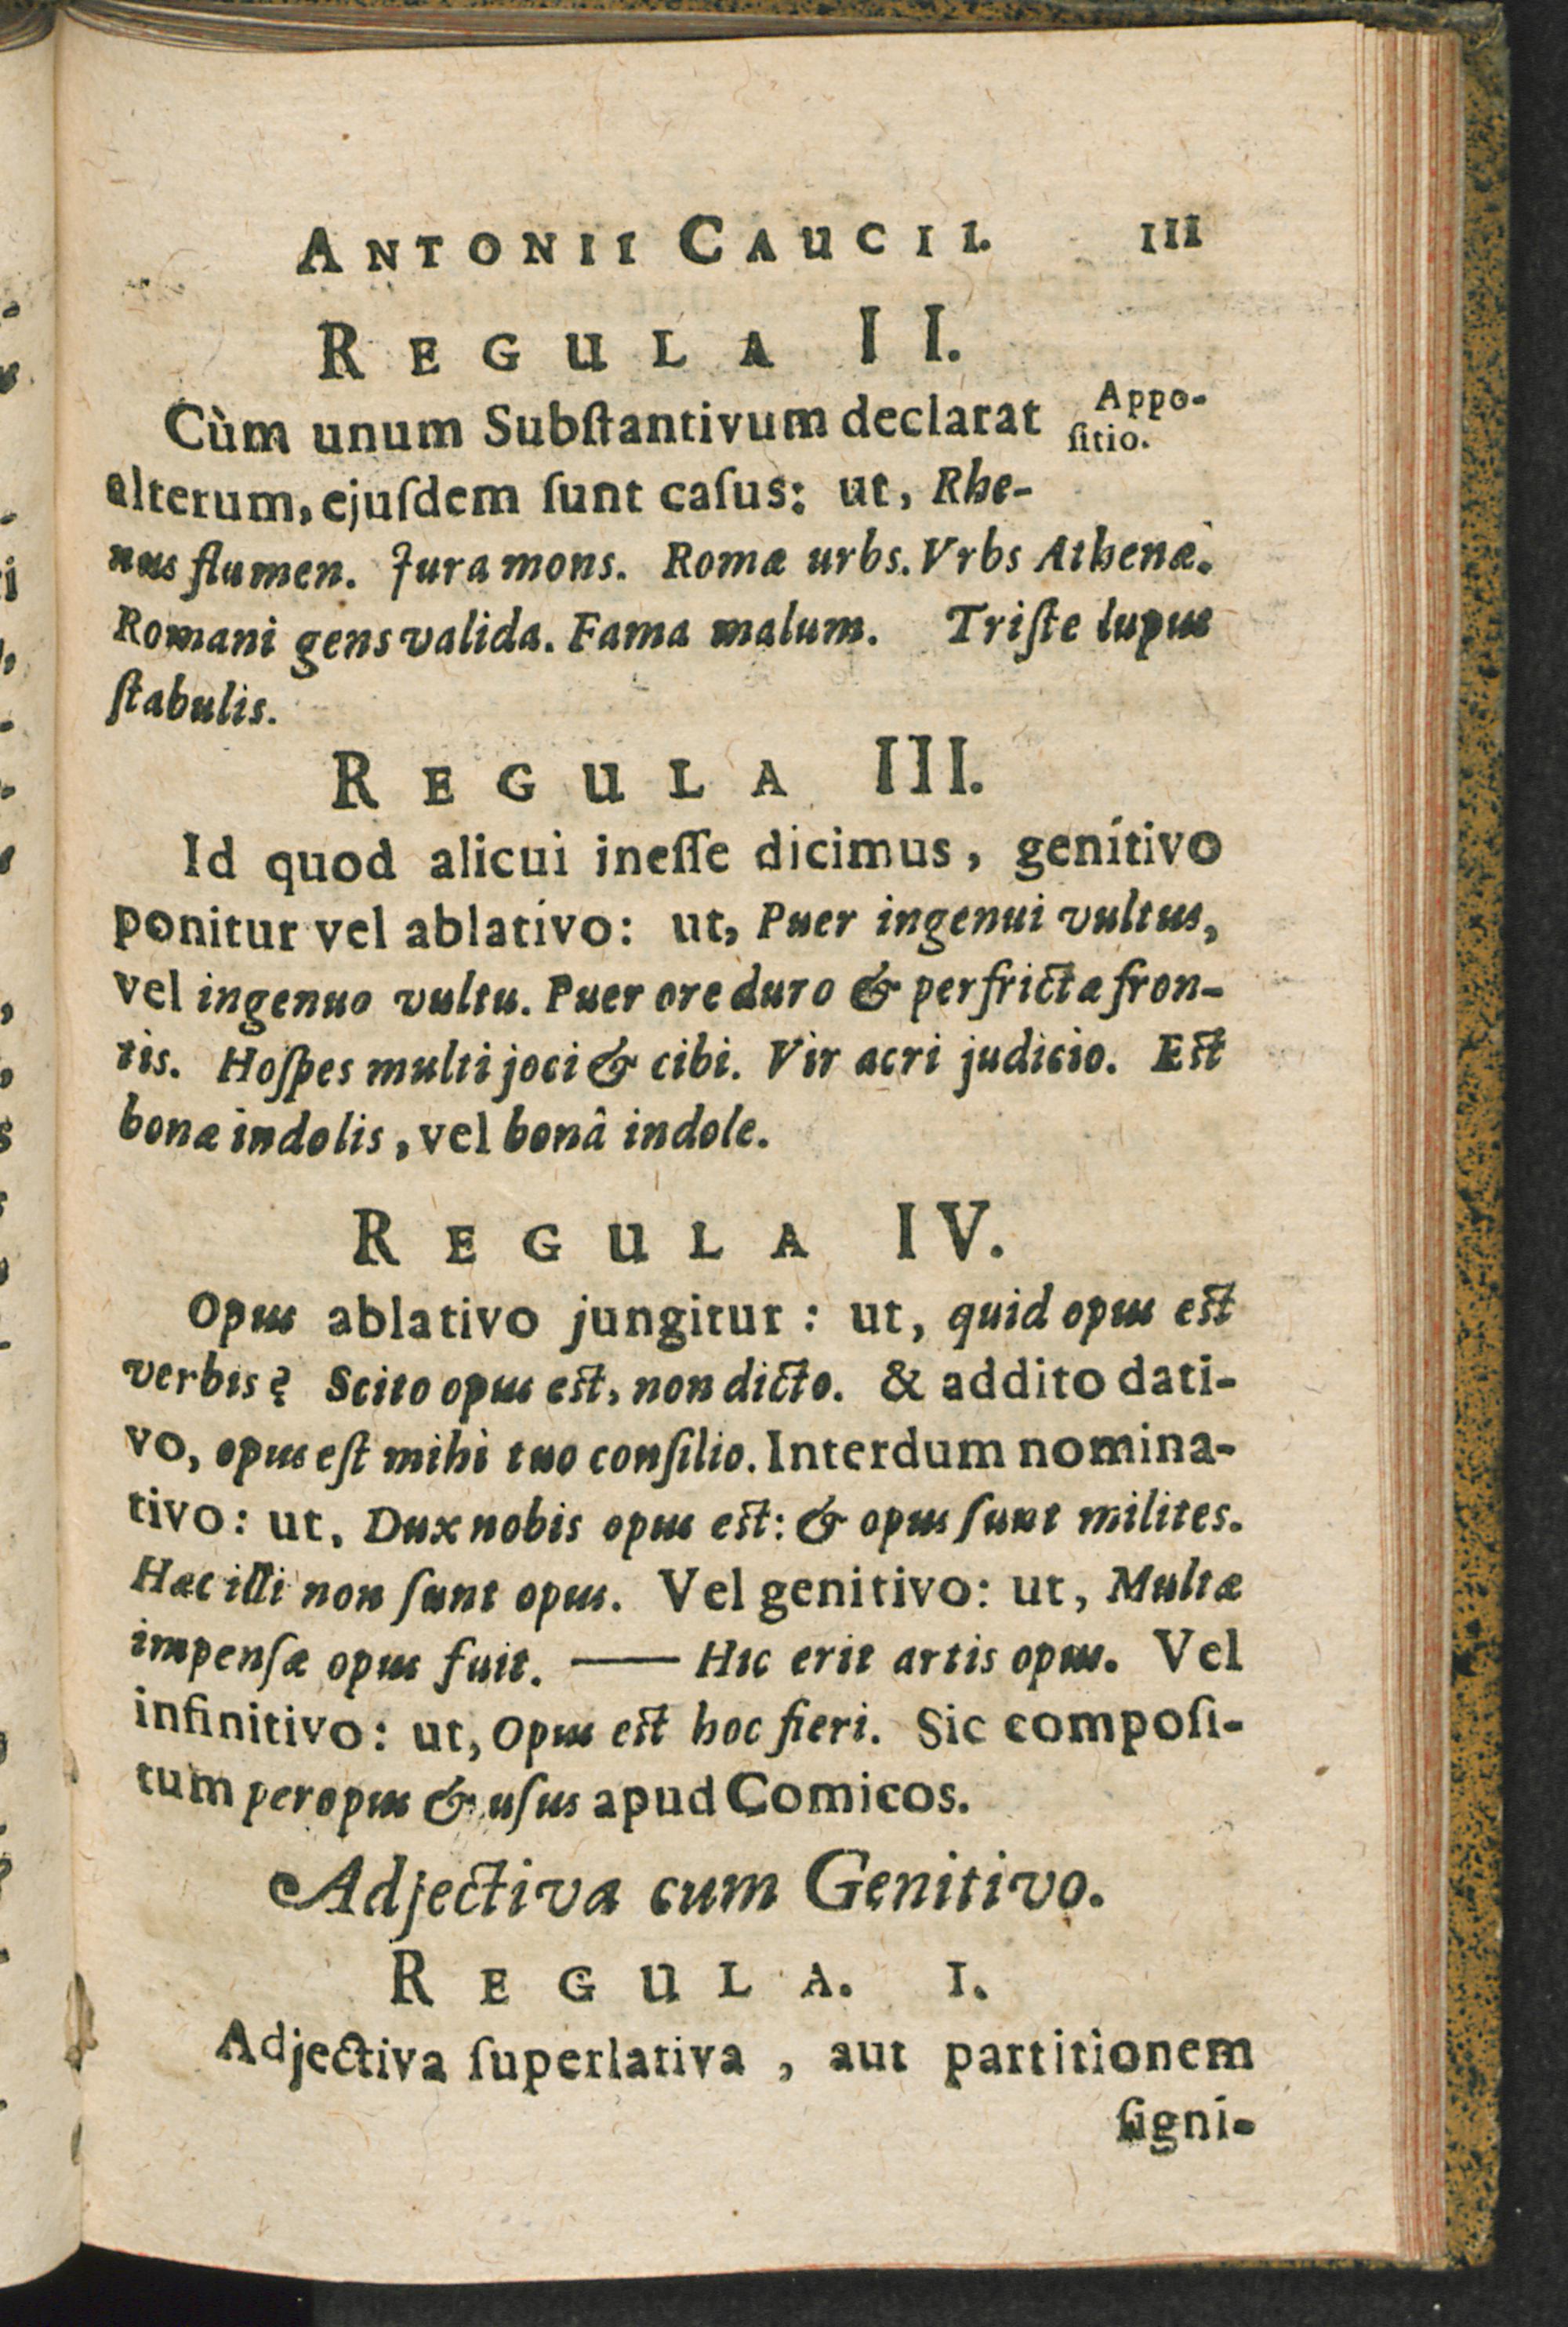 ANTONII CAUCII. III
REGULA II.
Cùm unum Subſtantivum declarat
Appo-
ſitio.
alterum, ejuſdem ſunt caſus: ut, Rhe-
nus flumen. Jura mons. Romæ urbs. Vrbs Athenæ.
Romani gens valida. Fama malum. Triſte lupus
ſtabulis.
REGULA III.
Id quod alicui ineſſe dicimus, genitivo
ponitur vel ablativo: ut, Puer ingenui vultus,
vel ingenuo vultu. Puer ore duro & perfrictæ fron-
tis. Hoſpes multi joci & cibi. Vir acri judicio. Eſt
bonæ indolis, vel bonâ indole.
REGULA IV.
Opus ablativo jungitur: ut, quid opus eſt
verbis? Scito opus eſt, non dicto. & addito dati-
vo, opus eſt mihi tuo conſilio. Interdum nomina-
tivo: ut, Dux nobis opus eſt: & opus ſunt milites.
Hæc illi non ſunt opus. Vel genitivo: ut, Multæ
impenſæ opus fuit. — Hic erit artis opus. Vel
infinitivo: ut, Opus eſt hoc fieri. Sic compoſi-
tum peropus & uſus apud Comicos.
Adjectiva cum Genitivo.
REGULA. I.
Adjectiva ſuperlativa, aut partitionem
ſigni-